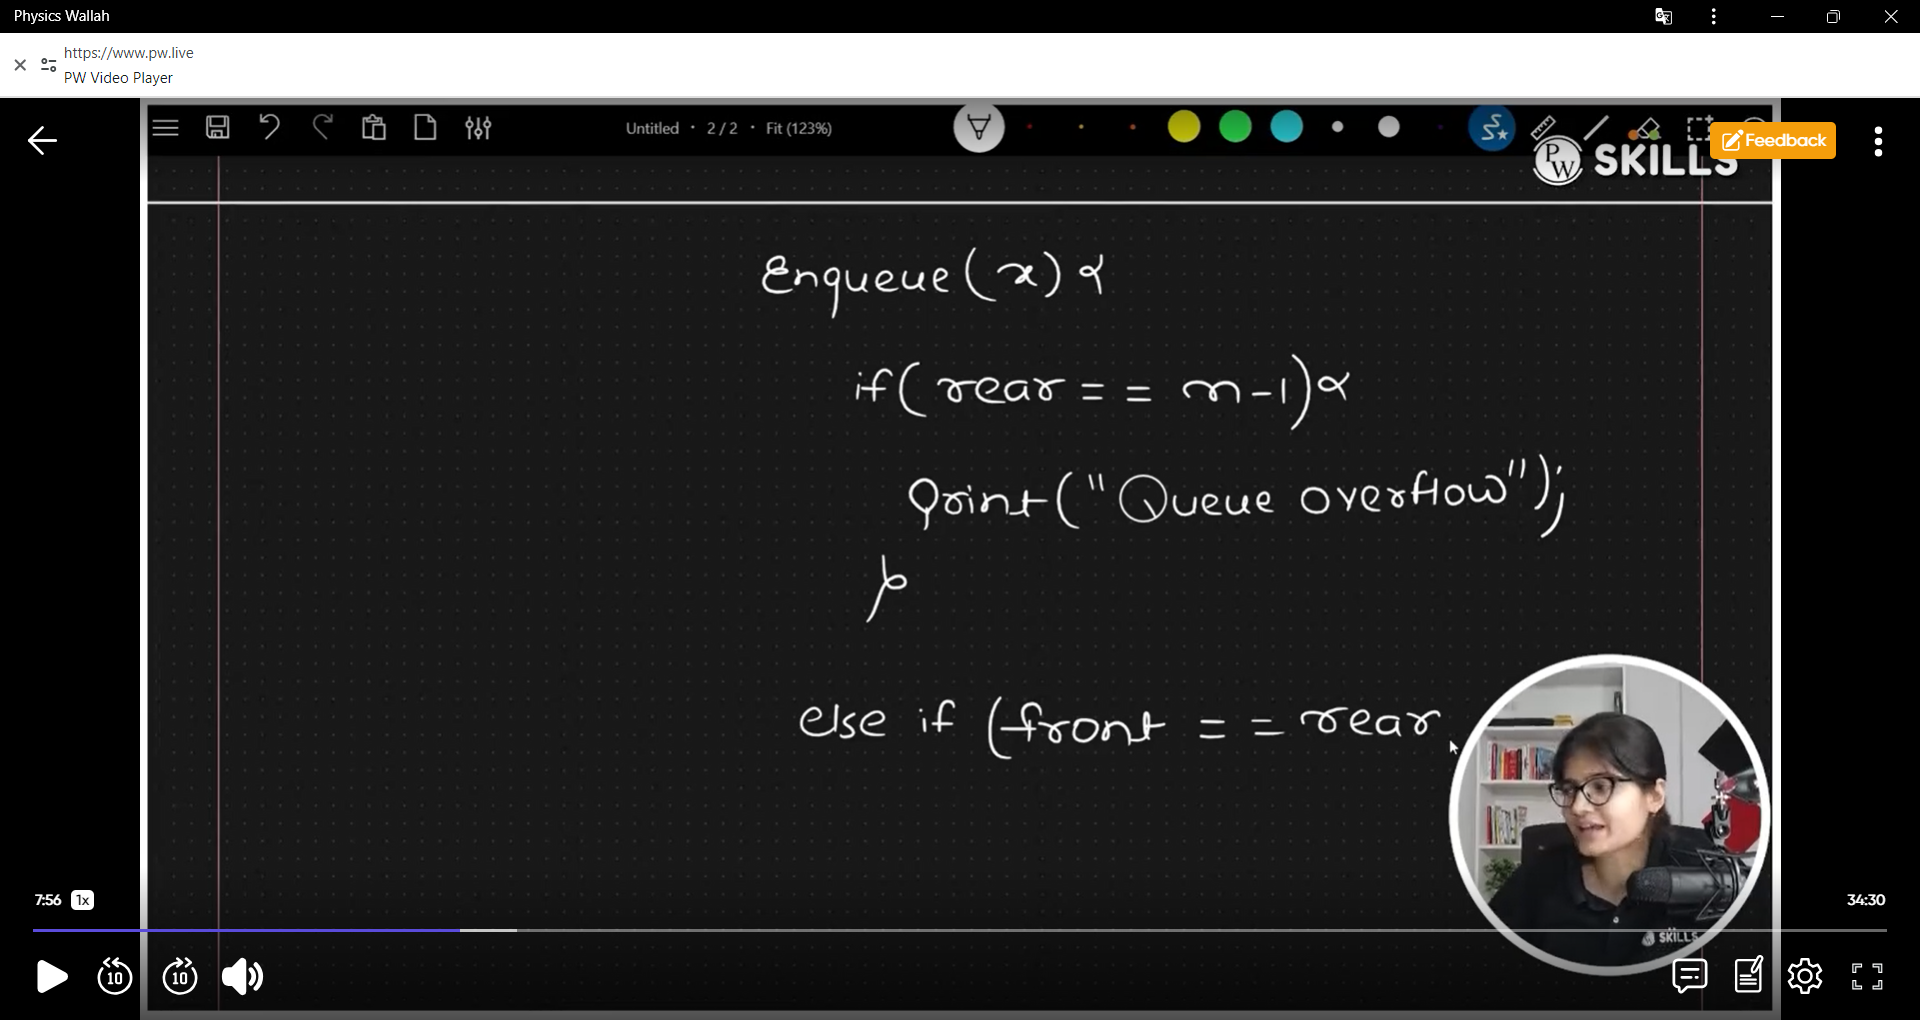 Physics Wallah
https://www.pw.live
PW Video Player
Untitled · 2/2 · Fit (123%)
Feedback
PW SKILLS
Enqueue(x) {
if( rear == n-1) {
Print("Queue overflow");
}
else if (front == rear
SKILLS
7:56 1x
34:30
10 10